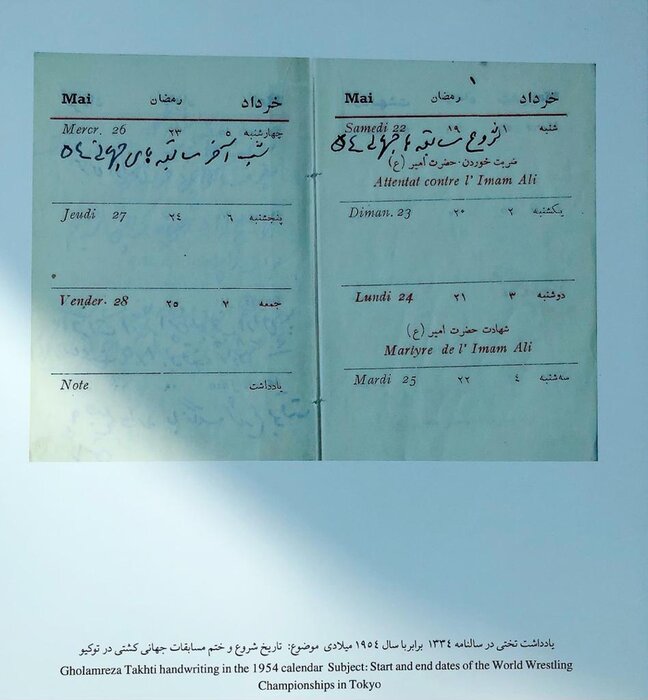 Mai رمضان خرداد
Mercr. 26 ٢٣ ٥ چهارشنبه
شب آخر مسابقه های جهانی ٥٤
Jeudi 27 ٢٤ ٦ پنجشنبه
Vender. 28 ٢٥ ٧ جمعه
Note یادداشت
١
Mai رمضان خرداد
Samedi 22 ١٩ ١ شنبه
شروع مسابقه جهانی ٥٤
ضربت خوردن حضرت امیر (ع)
Attentat contre l' Imam Ali
Diman. 23 ٢٠ ٢ یکشنبه
Lundi 24 ٢١ ٣ دوشنبه
شهادت حضرت امیر (ع)
Martyre de l' Imam Ali
Mardi 25 ٢٢ ٤ سه‌شنبه
یادداشت تختی در سالنامه ١٣٣٤ برابر با سال ١٩٥٤ میلادی موضوع: تاریخ شروع و ختم مسابقات جهانی کشتی در توکیو
Gholamreza Takhti handwriting in the 1954 calendar Subject: Start and end dates of the World Wrestling
Championships in Tokyo